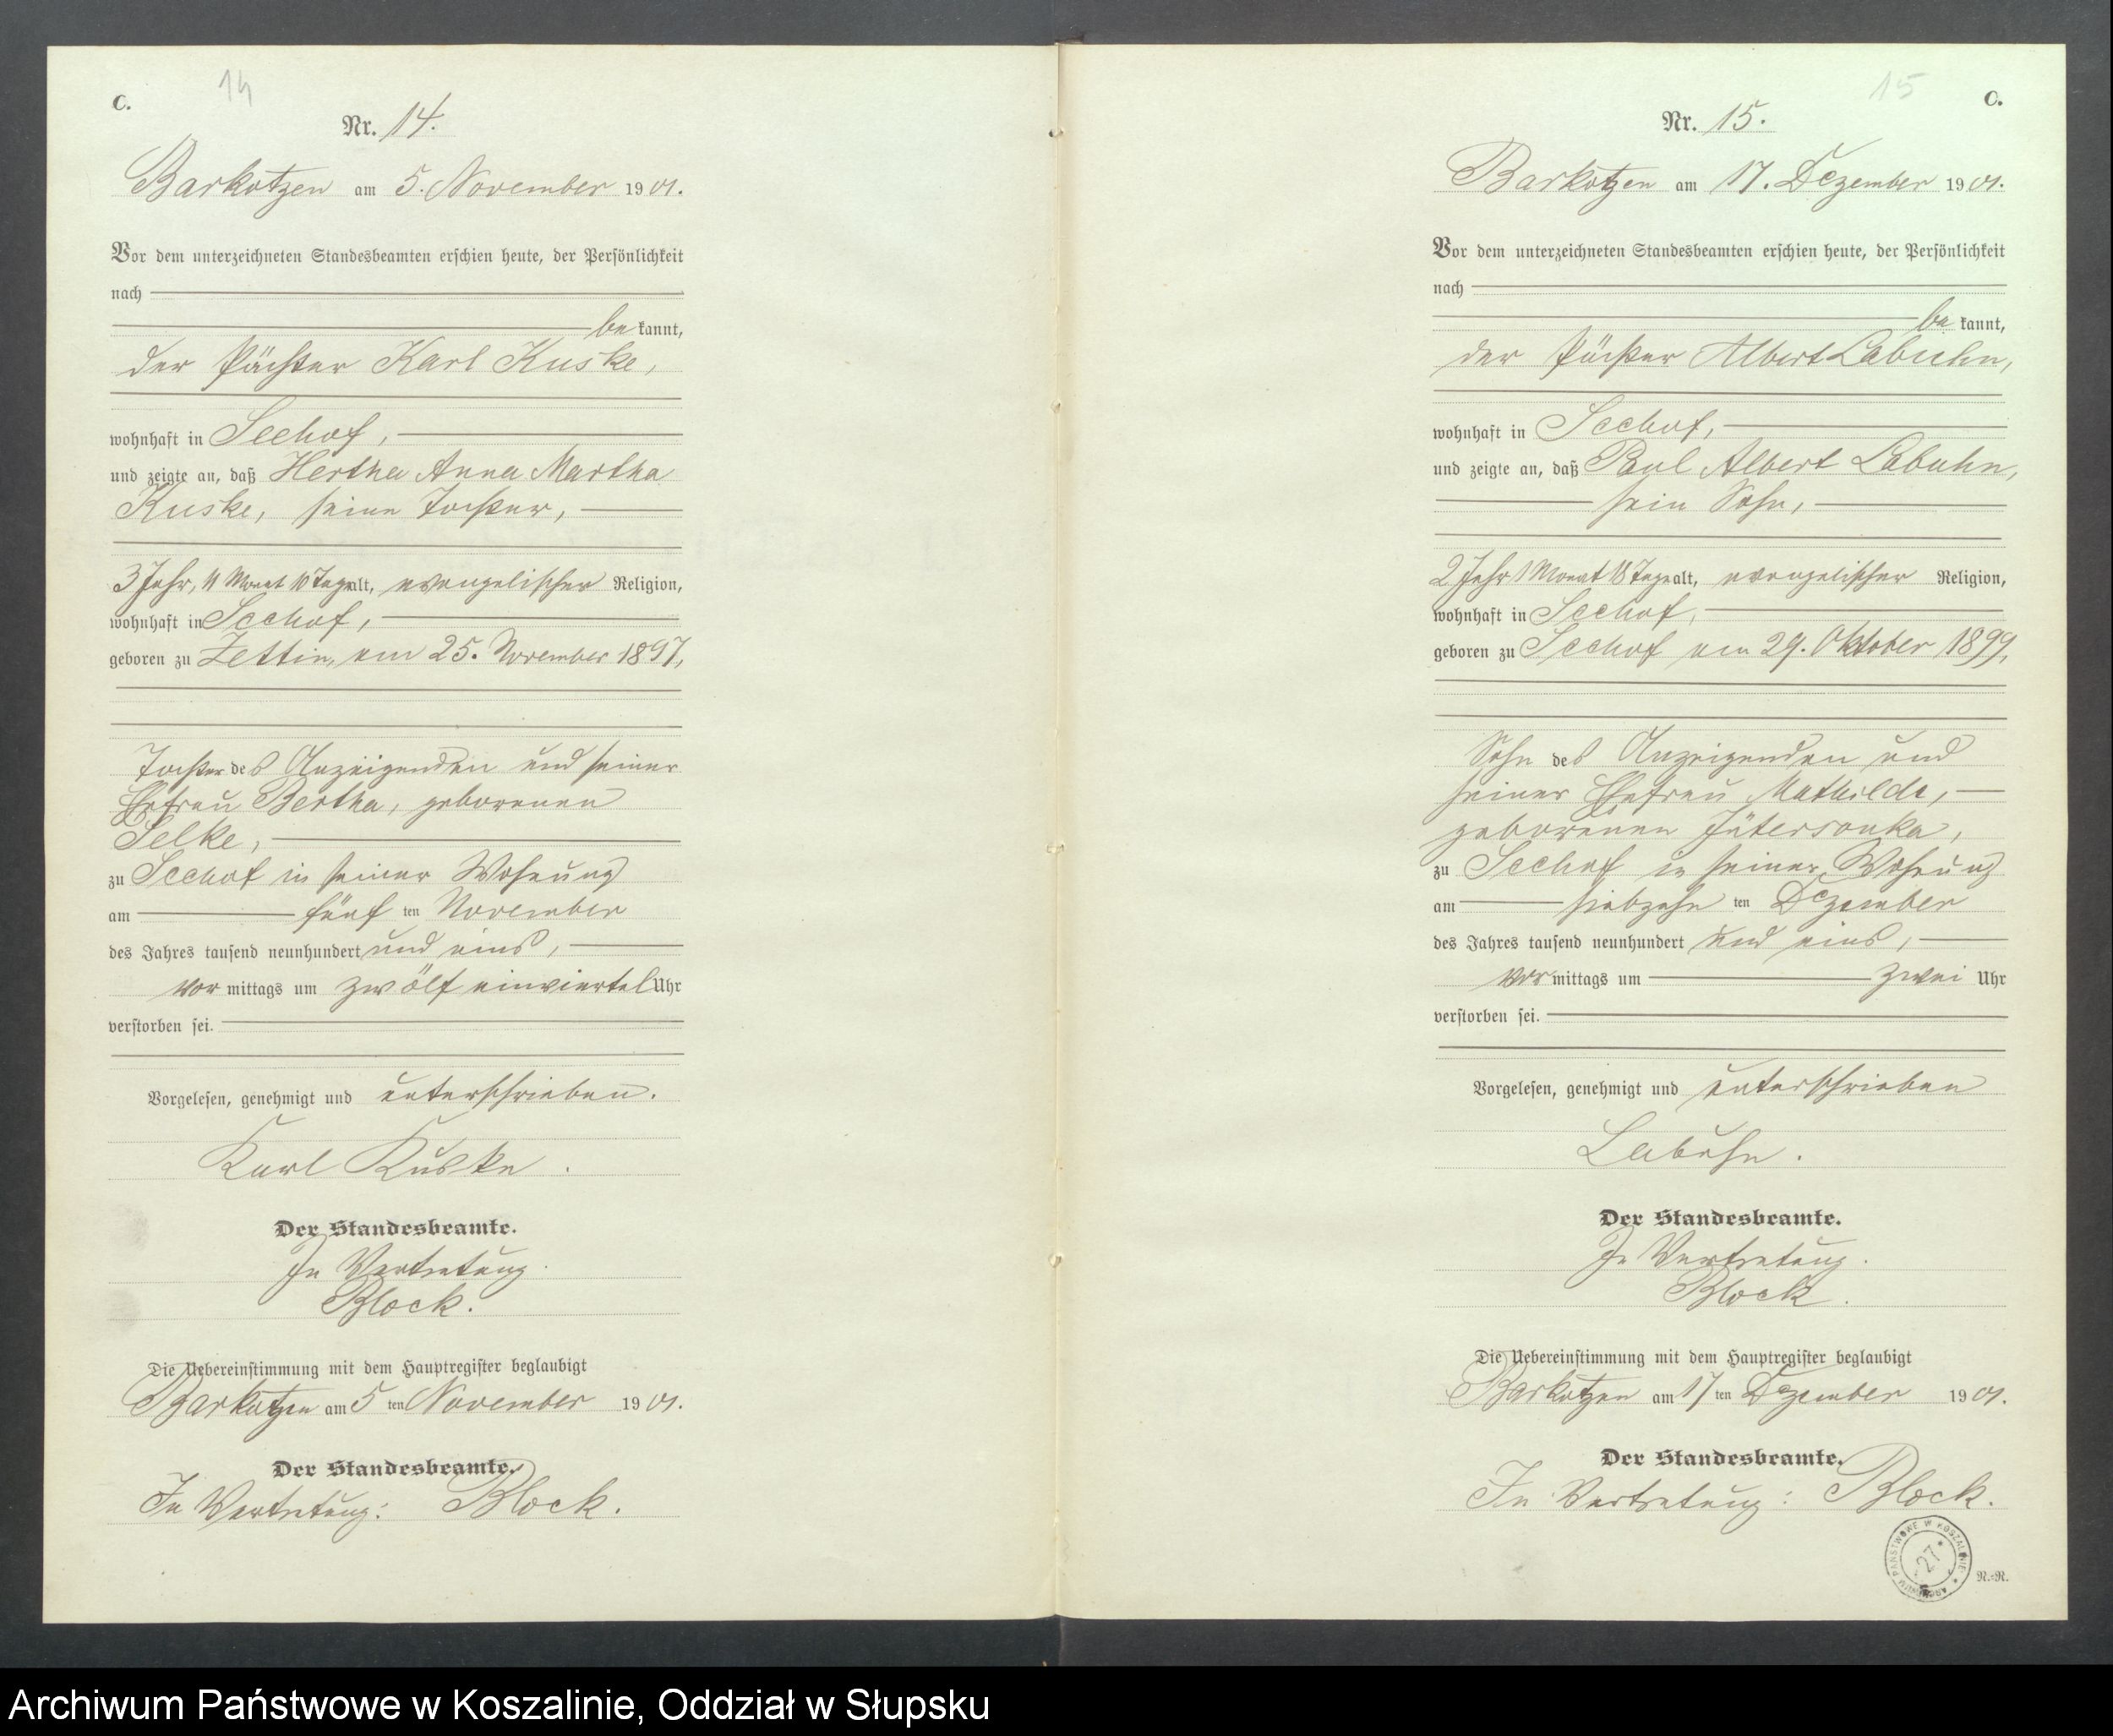 C.
14
Nr. 14.
Barkotzen am 5. November 1901.
Vor dem unterzeichneten Standesbeamten erschien heute, der Persönlichkeit
nach
bekannt,
der Pächter Karl Kuske,
wohnhaft in Seehof,
und zeigte an, daß Hertha Anna Martha
Kuske, seine Tochter,
3 Jahr, 11 Monat 10 Tage alt, evangelischer Religion,
wohnhaft in Seehof,
geboren zu Zettin, am 25. November 1897,
Tochter des Anzeigenden und seiner
Ehefrau Bertha, geborenen
Selke,
zu Seehof in seiner Wohnung
am fünften November
des Jahres tausend neunhundert und eins,
vormittags um zwölf einviertel Uhr
verstorben sei.
Vorgelesen, genehmigt und unterschrieben.
Karl Kuske.
Der Standesbeamte.
In Vertretung.
Block.
Die Uebereinstimmung mit dem Hauptregister beglaubigt
Barkotzen am 5ten November 1901.
Der Standesbeamte.
In Vertretung: Block.
15
C.
Nr. 15.
Barkotzen am 17. Dezember 1901.
Vor dem unterzeichneten Standesbeamten erschien heute, der Persönlichkeit
nach
bekannt,
der Pächter Albert Labuhn,
wohnhaft in Seehof,
und zeigte an, daß Paul Albert Labuhn,
sein Sohn,
2 Jahr 1 Monat 18 Tage alt, evangelischer Religion,
wohnhaft in Seehof,
geboren zu Seehof am 29. Oktober 1899,
Sohn des Anzeigenden und
seiner Ehefrau Mathilde,
geborenen Jütersonka,
zu Seehof in seiner Wohnung
am siebzehnten Dezember
des Jahres tausend neunhundert und eins,
vormittags um zwei Uhr
verstorben sei.
Vorgelesen, genehmigt und unterschrieben
Labuhn.
Der Standesbeamte.
In Vertretung.
Block.
Die Uebereinstimmung mit dem Hauptregister beglaubigt
Barkotzen am 17ten Dezember 1901.
Der Standesbeamte.
In Vertretung: Block.
ARCHIWUM PAŃSTWOWE W KOSZALINIE
27
N.-R.
Archiwum Państwowe w Koszalinie, Oddział w Słupsku